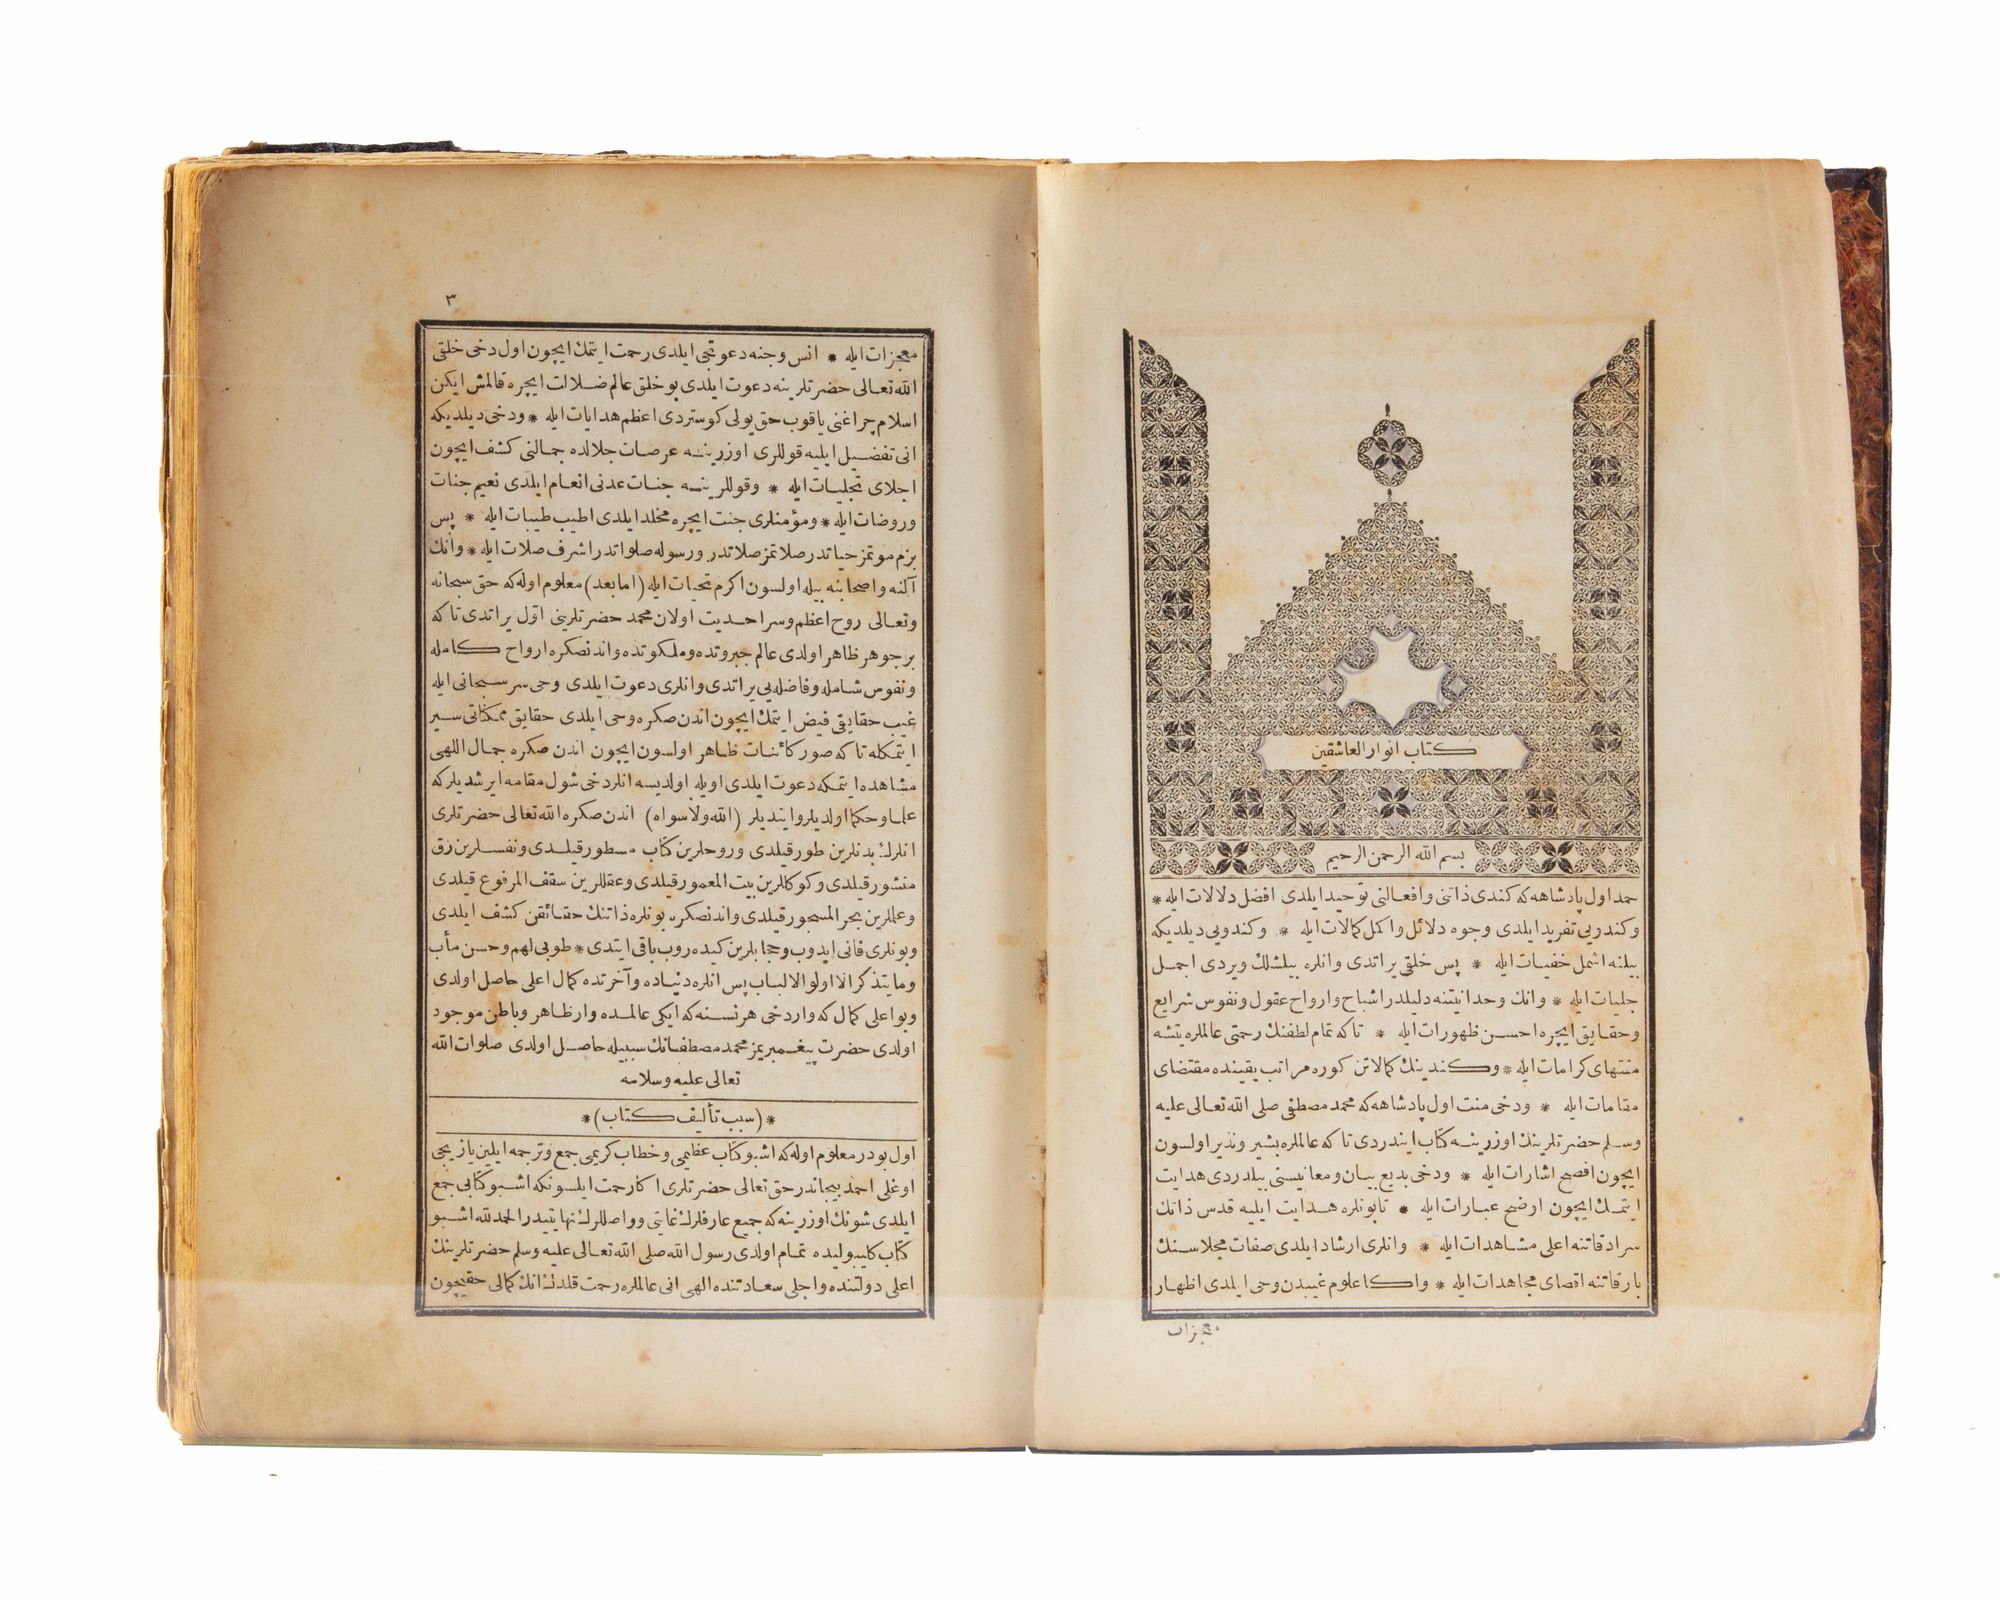 كتاب انوار العاشقين
بسم الله الرحمن الرحيم
حمد اول پادشاهه كه كندی ذاتنی وافعالنی توحید ایلدی افضل دلالات ایله *
وكندویی تفرید ایلدی وجوه دلائل واكمل كمالات ایله * وكندویی دیلدیكه
بیلنه اشمل خفیات ایله * پس خلقی یراتدی وانلره بیلشلك ویردی اجمل
جلیات ایله * وانك وحدانیتنه دلیلدر اشباح وارواح عقول ونفوس شرایع
وحقایق ایچره احسن ظهورات ایله * تاكه تمام لطفنك رحمتی عالملره یتشه
منتهای كرامات ایله * وكندینك كمالاتن كوره مراتب یقینده مقتضای
مقامات ایله * ودخی منت اول پادشاهه كه محمد مصطفی صلی الله تعالی علیه
وسلم حضرتلرینك اوزرینه كتاب ایندردی تا كه عالملره بشیر ونذیر اولسون
ایچون افصح اشارات ایله * ودخی بدیع بیان ومعانیسنی بیلدردی هدایت
ایتمك ایچون اوضح عبارات ایله * تا بونلره هدایت ایلیه قدس ذاتك
سرادقاتنه اعلی مشاهدات ایله * وانلری ارشاد ایلدی صفات مجلاسنك
بارقاتنه اقصای مجاهدات ایله * واكا علوم غیبدن وحی ایلدی اظهار
معجزات
٣
معجزات ایله * انس وجنه دعوتجی ایلدی رحمت ایتمك ایچون اول دخی خلقی
الله تعالی حضرتلرینه دعوت ایلدی بو خلق عالم ضلالت ایچره قالمش ایكن
اسلام چراغنی یاقوب حق یولی كوستردی اعظم هدایات ایله * ودخی دیلدیكه
انی تفضیل ایلیه قوللری اوزرینه عرصات جلالده جمالنی كشف ایچون
اجلای تجلیات ایله * وقوللرینه جنات عدنی انعام ایلدی نعیم جنات
وروضات ایله * ومؤمنلری جنت ایچره مخلد ایلدی اطیب طیبات ایله * پس
بزم موتمز حیاتدر صلاتمز صلاتدر ورسوله صلواتدر اشرف صلات ایله * وانك
آلنه واصحابنه بیله اولسون اكرم تحیات ایله (اما بعد) معلوم اوله كه حق سبحانه
وتعالی روح اعظم وسر احدیت اولان محمد حضرتلرینی اول یراتدی تا كه
بر جوهر ظاهر اولدی عالم جبروتده وملكوتده واندنصكره ارواح كامله
ونفوس شامله وفاضله یی یراتدی وانلری دعوت ایلدی وحی سر سبحانی ایله
غیب حقایقی فیض ایتمك ایچون اندن صكره وحی ایلدی حقایق ممكناتی سیر
ایتمكله تا كه صور كائنات ظاهر اولسون ایچون اندن صكره جمال اللهی
مشاهده ایتمكه دعوت ایلدی اویله اولدیسه انلر دخی شول مقامه ایرشدیلر كه
علما وحكما اولدیلر وایتدیلر (الله ولا سواه) اندن صكره الله تعالی حضرتلری
انلرك بدنلرین طور قیلدی وروحلرین كتاب مسطور قیلدی ونفسلرین رق
منشور قیلدی وكوكللرین بیت المعمور قیلدی وعقللرین سقف المرفوع قیلدی
وعلملرین بحر المسجور قیلدی واندنصكره بونلره ذاتنك حقائقن كشف ایلدی
وبونلری فانی ایدوب وحجابلرین كیده روب باقی ایتدی * طوبی لهم وحسن مأب
وما یتذكر الا اولوا الالباب پس انلره دنیاده وآخرتده كمال اعلی حاصل اولدی
وبو اعلی كمال كه واردخی هر نسنه كه ایكی عالمده وار ظاهر وباطن موجود
اولدی حضرت پیغمبریمز محمد مصطفانك سببیله حاصل اولدی صلوات الله
تعالی علیه وسلامه
* (سبب تألیف كتاب) *
اول بودر معلوم اوله كه اشبو كتاب عظیمی وخطاب كریمی جمع وترجمه ایلین یازیجی
اوغلی احمد بیجاندر حق تعالی حضرتلری اكا رحمت ایلسونكه اشبو كتابی جمع
ایلدی شونك اوزرینه كه جمیع عارفلرك غایتی وواصللرك نهایتیدر الحمد لله اشبو
كتاب كلیبولیده تمام اولدی رسول الله صلی الله تعالی علیه وسلم حضرتلرینك
اعلی دولتنده واجلی سعادتنده الهی انی عالملره رحمت قلدك انك كمالی حقیچون